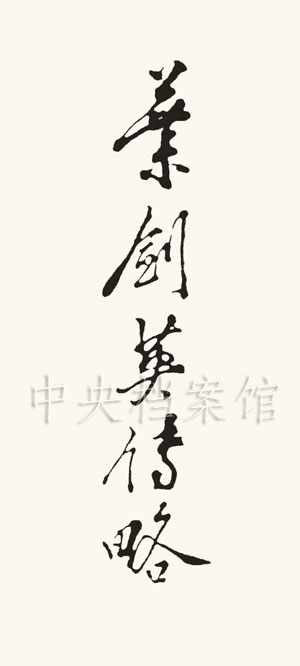 葉剑英传略
中央档案馆